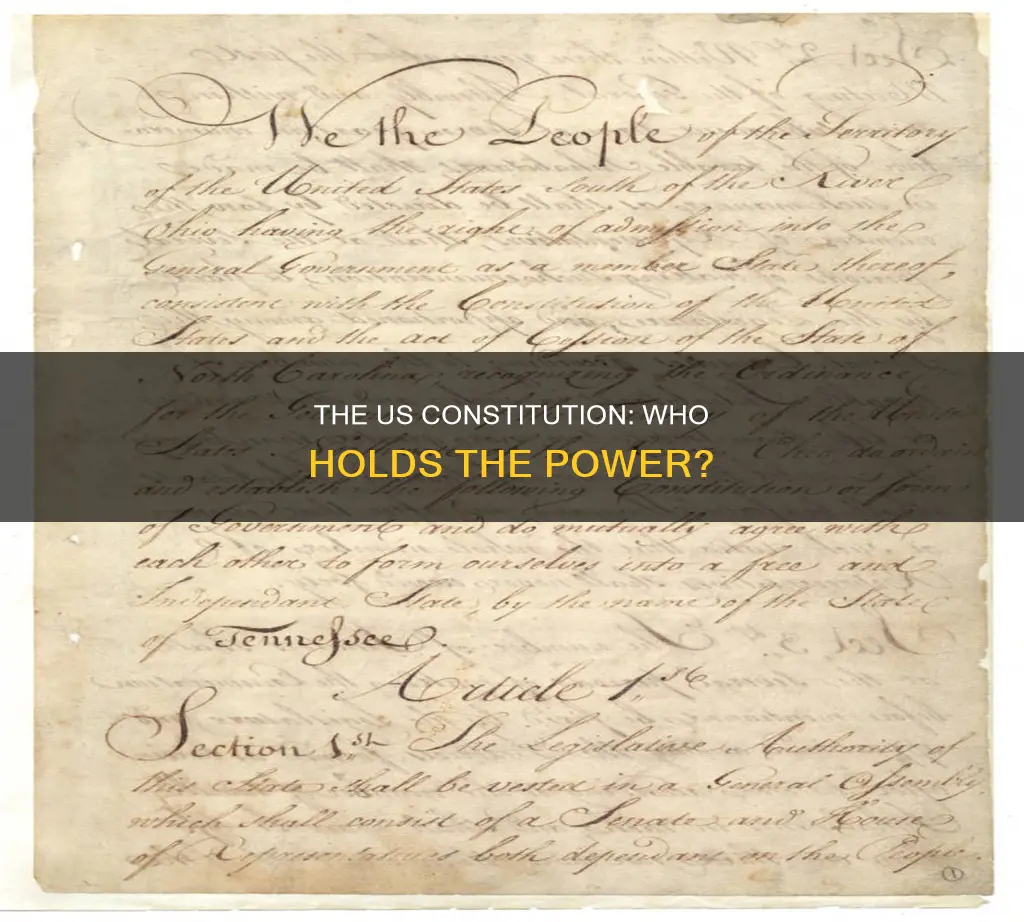 We the People of the Territory
of the United States South of the River
Ohio having the right of admission into the
General Government as a member State thereof,
consistent with the Constitution of the United
States and the act of Cession of the State of
North Carolina, recognizing the Ordinance
THE US CONSTITUTION: WHO
for the of the
HOLDS THE POWER?
States do ordain
and establish the following Constitution or form
of Government and do mutually agree with
each other to form ourselves into a free and
Independant State, by the name of the State
of Tennessee.
Article 1.st
Section 1.st The Legislative Authority of
this State shall be vested in a General Assembly,
which shall consist of a Senate and House
of Representatives both dependant on the People.
1